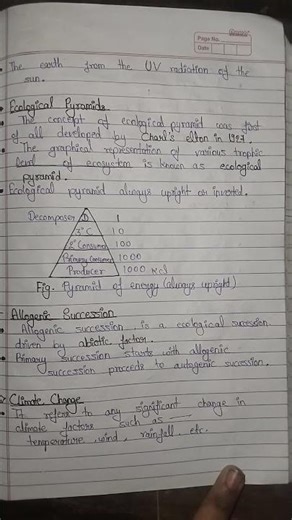 Page No.
Date
• The earth from the UV radiation of the
sun.
• Ecological Pyramids
• The concept of ecological pyramid was first
of all developed by Charl's elton in 1927.
• The graphical representation of various trophic
level of ecosystem is known as ecological
pyramid.
• Ecological pyramid always upright or inverted.
Decomposer D 1
3° C 10
2° Consumer 100
Primary Consumer 1000
Producer 1000 KCJ
Fig. Pyramid of energy (always upright)
Allogenic Succession
• Allogenic succession is a ecological succession
driven by abiotic factors.
• Primary succession starts with allogenic
succession proceeds to autogenic sucession.
Climatic Change
• It refers to any significant change in
climate factors such as
temperature, wind, rainfall etc.